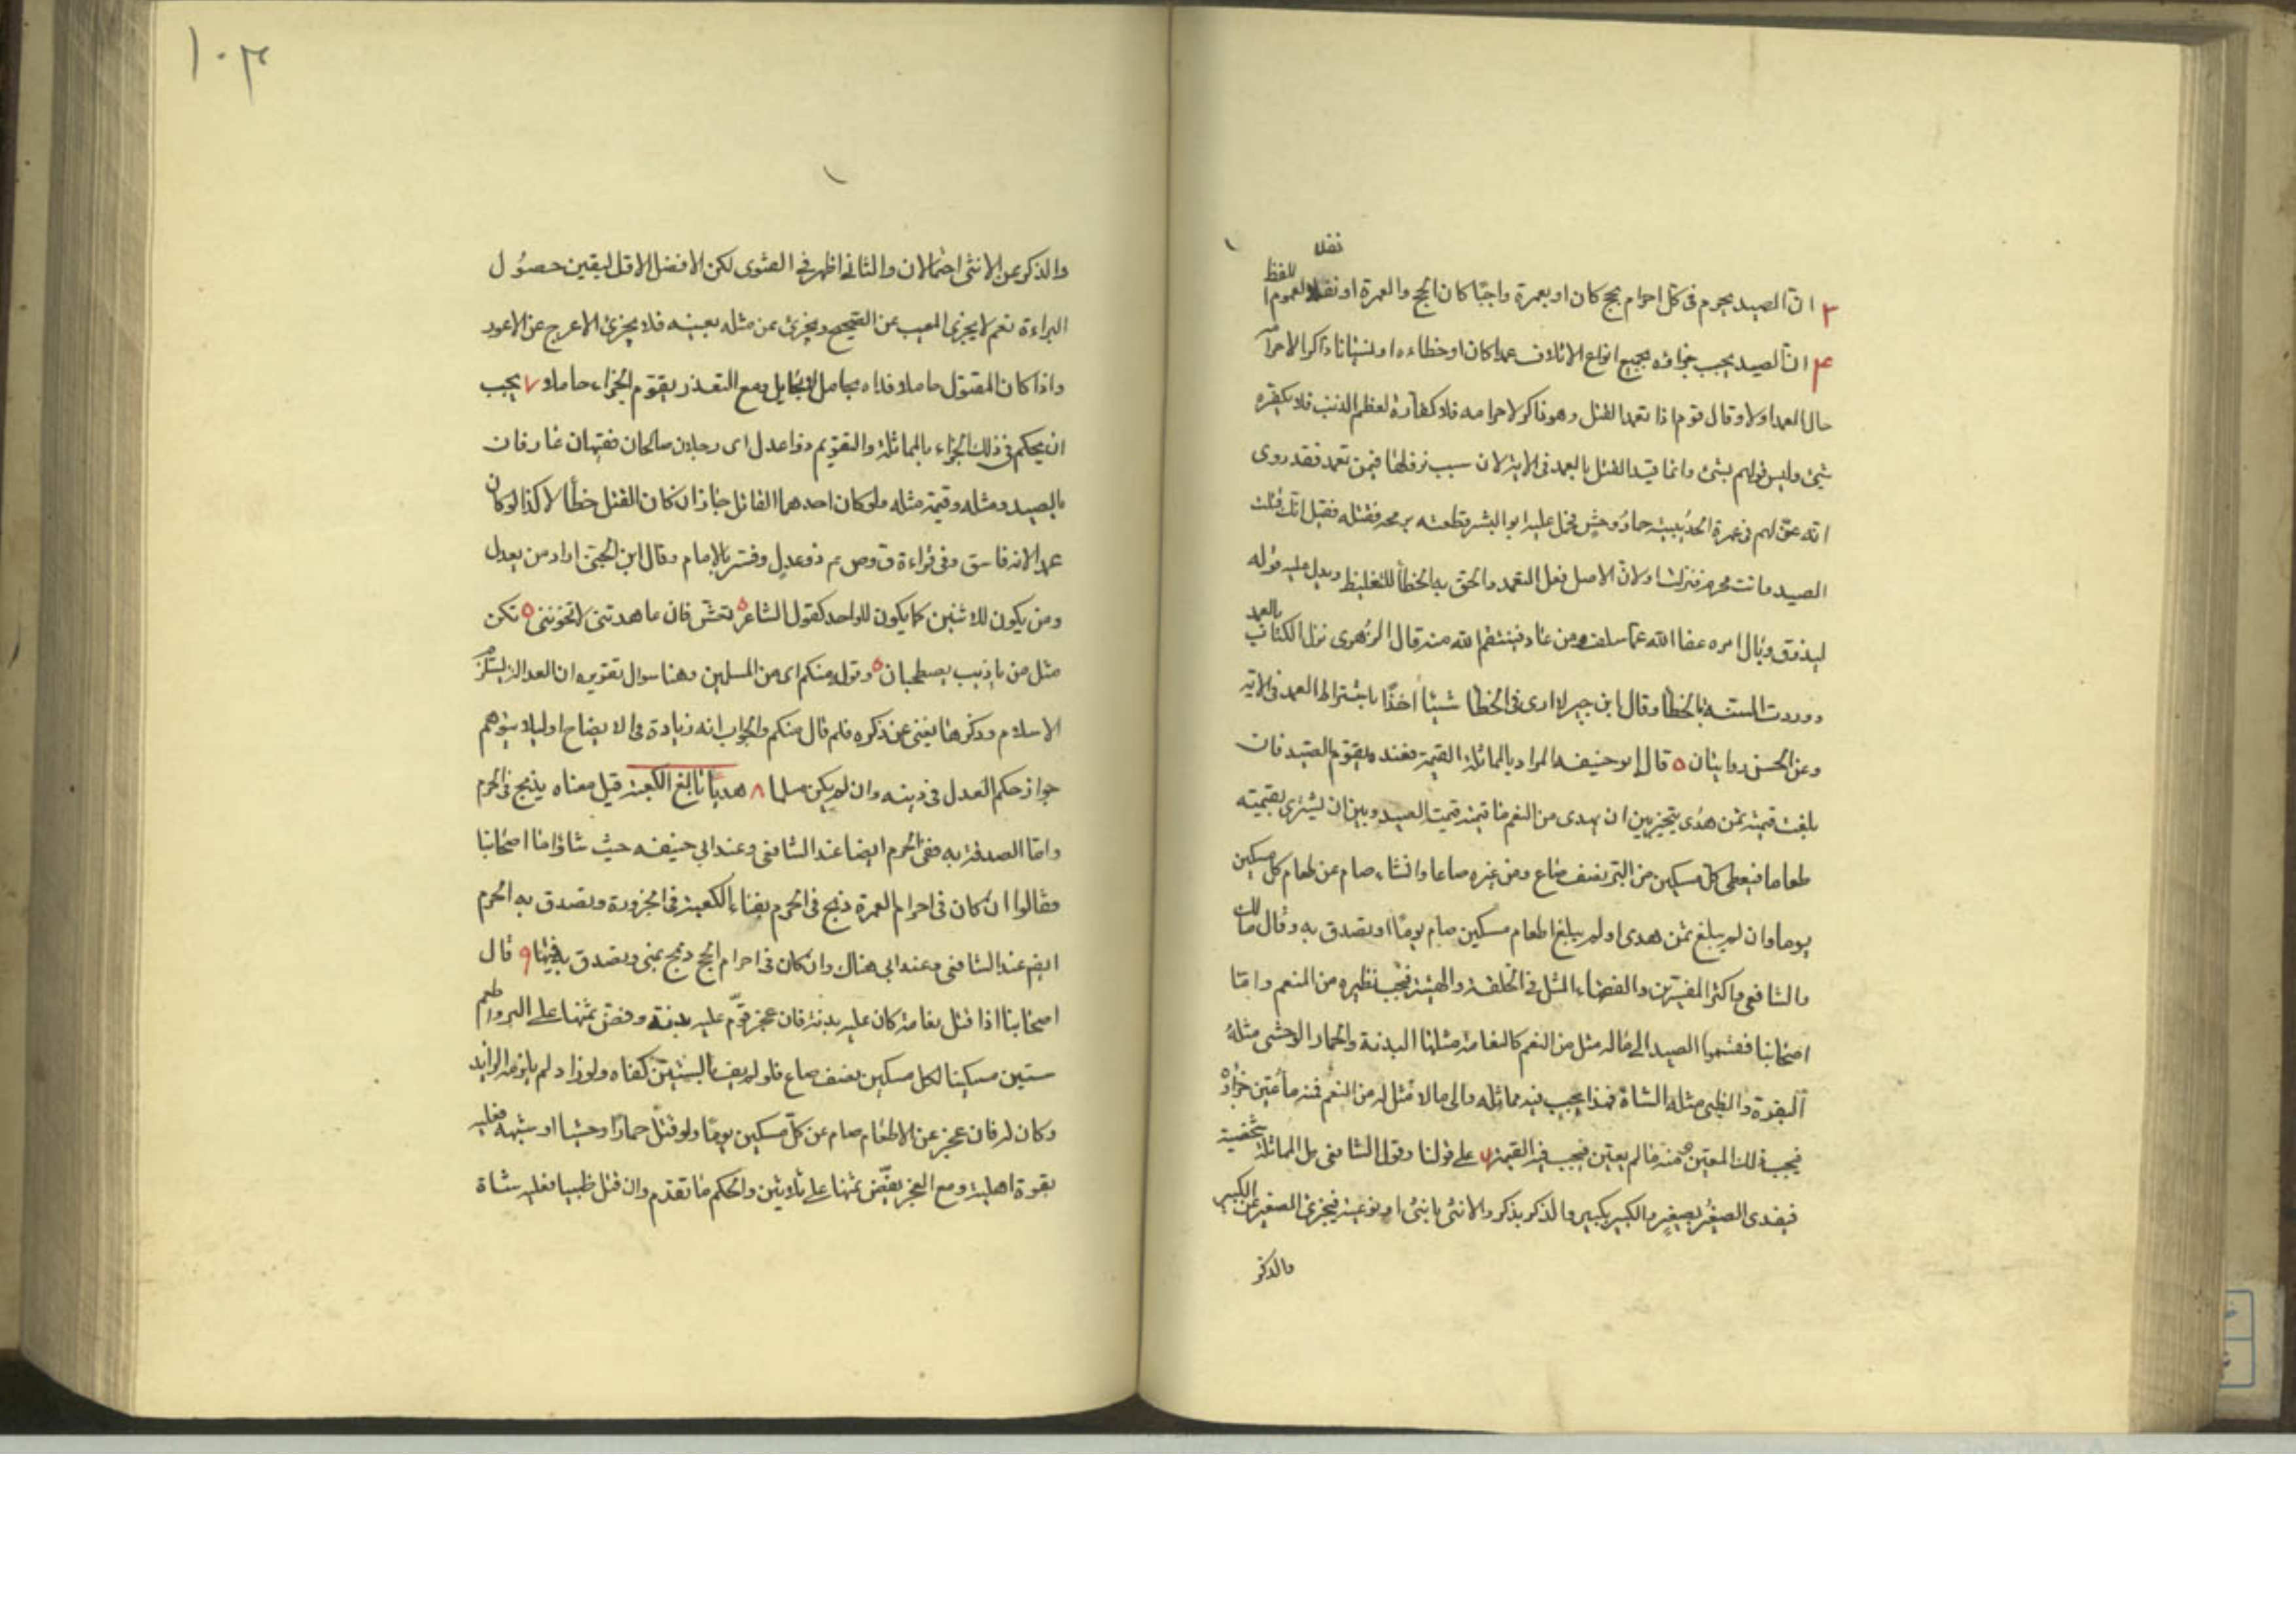 نفلا
للفظ
٣ ان الصيد يحرم فى كل احرام بحج كان او بعمرة واجبًا كان الحج والعمرة او نفلا لعموم ا
٤ ان الصيد يجب جزاؤه بجميع انواع الاتلاف عمدا كان او خطاء او نسيانا ذاكرا لاحرامه
حال العمد اولا وقال قوم اذا تعمد القتل وهو ذاكر لاحرامه فلا كفارة لعظم الذنب فلا يكفره
شئ وليس قولهم بشئ وانما قيد القتل بالعمد فى الاية لان سبب نزولها فيمن تعمد فقد روى
انه عنّ لهم فى عمرة الحديبية حمار وحش فحمل عليه ابو البشر وطعنه برمحه فقتله فقيل انك قتلت
الصيد وانت محرم فنزلت ولان الاصل فعل التعمد والحق به الخطأ للتغليظ ويدل عليه قوله
ليذوق وبال امره عفا الله عما سلف ومن عاد فينتقم الله منه قال الزهرى نزل الكتاب بالعمد
ووردت السنة بالخطأ وقال ابن جبير لا ارى فى الخطأ شيئا اخذًا باشتراط العمد فى الاية
وعن الحسن روايتان ٥ قال ابو حنيفه المراد بالمماثلة القيمة فعنده يقوم الصيد فان
بلغت قيمته ثمن هدى يتخير بين ان يهدى من النعم ما قيمته قيمت الصيد وبين ان يشترى بقيمته
طعاما فيعطى كل مسكين من البر نصف صاع ومن غيره صاعا وان شاء صام عن طعام كل مسكين
يوما وان لم يبلغ ثمن هدى او لم يبلغ اطعام مسكين صام يومًا او تصدق به وقال مالك
والشافعى واكثر المفسرين والفقهاء المثل فى الخلقة والهيئة فيجب نظيره من النعم واما
اصحابنا فقسموا الصيد الى ماله مثل من النعم كالنعامة مثلها البدنة والحمار الوحشى مثله
البقرة والظبى مثله الشاة فهذا يجب فيه مماثله والى مالا مثل له من النعم فمنه ما عين جزاؤه
فيجب ذلك المعين ومنه ما لم يعين فيجب فيه القيمة ٦ على قولنا وقول الشافعى هل المماثلة شخصية
فيفدى الصغير بصغير والكبير بكبير والذكر بذكر والانثى بانثى او نوعية فيجزى الصغير عن الكبير
والذكر
١٠٣
والذكر عن الانثى احتمالان والثانى اظهر فى الفتوى لكن الافضل الاقل ليقين حصول
البراءة نعم لا يجزى المعيب عن الصحيح ويجزئ عن مثله بعينه فلا يجزئ الاعرج عن الاعور
واذا كان المقتول حاملا فداه بحامل ومع التعذر يقوم الجزاء حاملا ٧ يجب
ان يحكم فى ذلك الجزاء بالمماثلة والتقويم ذوا عدل اى رجلان صالحان فقيهان عارفان
بالصيد ومثله وقيمة مثله ولو كان احدهما القاتل جاز ان كان القتل خطأ لا كذا لو كان
عمدا لانه فاسق وفى قراءة ق وص ع م ذو عدل وفسر بالامام وقال ابن الجنى اراد من يعدل
ومن يكون للاثنين كما يكون للواحد كقول الشاعر ٥ تعش فان عاهدتنى لا تخوننى ٥ نكن
مثل من ياذيب يصطحبان ٥ وقوله منكم اى من المسلمين وهنا سوال تقريره ان العدالة تستلزم
الاسلام وذكرها يغنى عن ذكره فلم قال منكم والجواب انه زيادة فى الايضاح او لئلا يتوهم
جواز حكم العدل فى دينه وان لم يكن مسلما ٨ هديا بالغ الكعبة قيل معناه يذبح فى الحرم
واما الصدقة به ففى الحرم ايضا عند الشافعى وعند ابى حنيفه حيث شاؤا اما اصحابنا
فقالوا ان كان فى احرام العمرة ذبح فى الحرم بفناء الكعبة فى الحزورة وتصدق به الحرم
ايضا عند الشافعى وعند ابى هناك وان كان فى احرام الحج ذبح بمنى وتصدق به فيها ٩ قال
اصحابنا اذا قتل نعامة كان عليه بدنة فان عجز قوم عليه بدنة وفض ثمنها على البر واطعم
ستين مسكينا لكل مسكين نصف صاع فلو لم يف بالستين كفاه ولو زاد لم يلزمه الزايد
وكان له فان عجز عن الاطعام صام عن كل مسكين يومًا ولو قتل حمارًا وحشيا او شبهه فعليه
بقرة اهلية ومع العجز يفض ثمنها على ثلاثين والحكم ما تقدم وان قتل ظبيا فعليه شاة